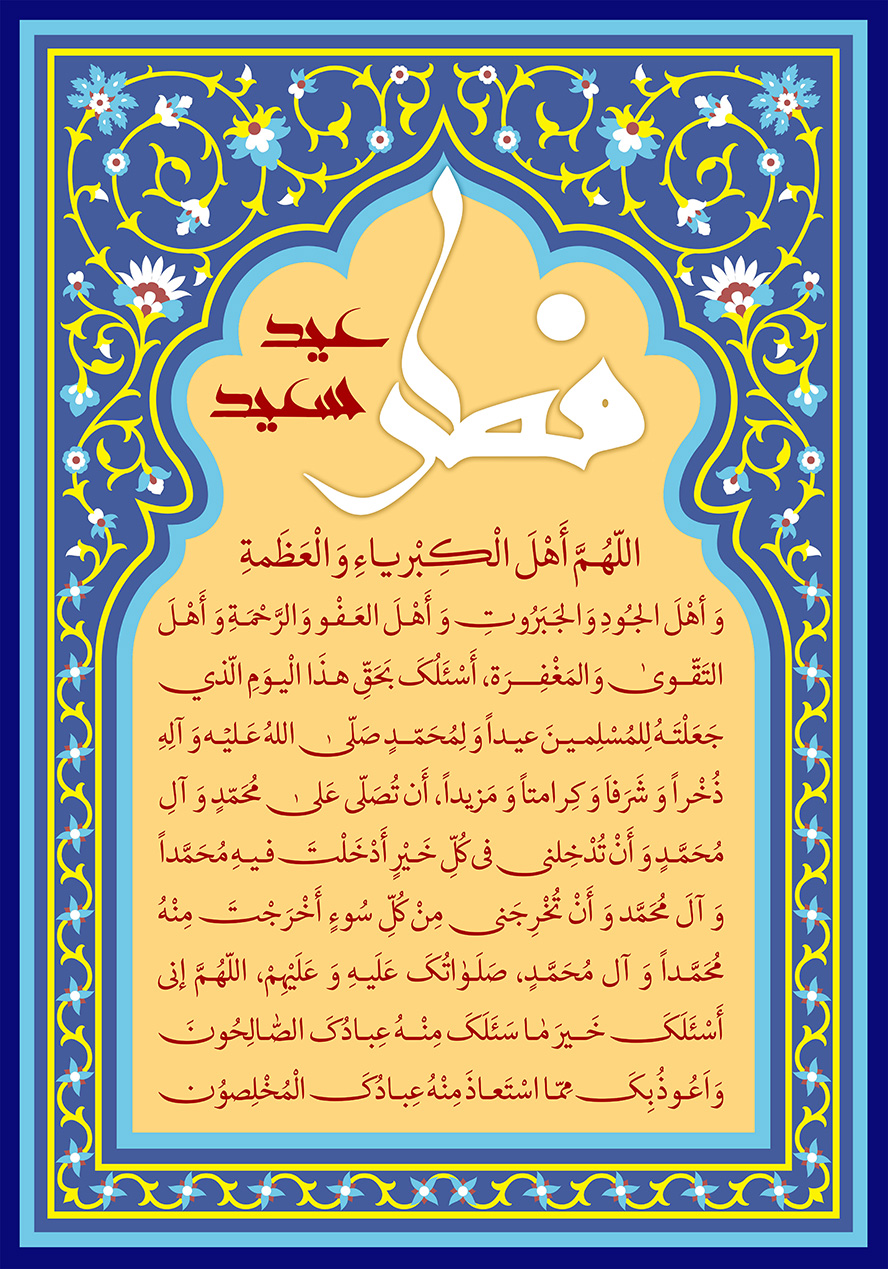 عید
سعید
فطر
اللّهُمَّ أَهْلَ الْکِبْریاءِ وَ الْعَظَمةِ
وَ أهْلَ الجُودِ وَ الجَبَرُوتِ وَ أَهْلَ العَفْو وَ الرَّحْمَةِ وَ أَهْلَ
التَقّوىٰ وَ المَغْفِرَة، أَسْئَلُکَ بَحَقِّ هذَا الْیَومِ الّذي
جَعَلْتَهُ لِلمُسْلِمینَ عیداً وَ لِمُحَمّدٍ صَلّیٰ اللهُ عَلیْه وَ آلِهِ
ذُخْراً وَ شَرَفاَ وَ کِرامتاً وَ مَزیداً، أَن تُصَلّی عَلیٰ مُحَمّدٍ وَ آلِ
مُحَمَّدٍ وَ أَنْ تُدْخِلنی فی کُلِّ خَیْرٍ أَدْخَلْتَ فیهِ مُحَمَّداً
وَ آلَ مُحَمَّد وَ أَنْ تُخْرِجَنی مِنْ کُلِّ سُوءٍ أَخْرَجْتَ مِنْهُ
مُحَمَّداً وَ آل مُحَمَّدٍ، صَلَوٰاتُکَ عَلَیهِ وَ عَلَیْهِمْ، اللّهُمَّ إنی
أَسْئَلَکَ خَیرَ مٰا سَئَلَکَ مِنْهُ عِبادُکَ الصّٰالِحُونَ
وَ اَعُوذُبِکَ مِمّا اسْتَعاذَ مِنْهُ عِبادُکَ الْمُخْلِصوُن